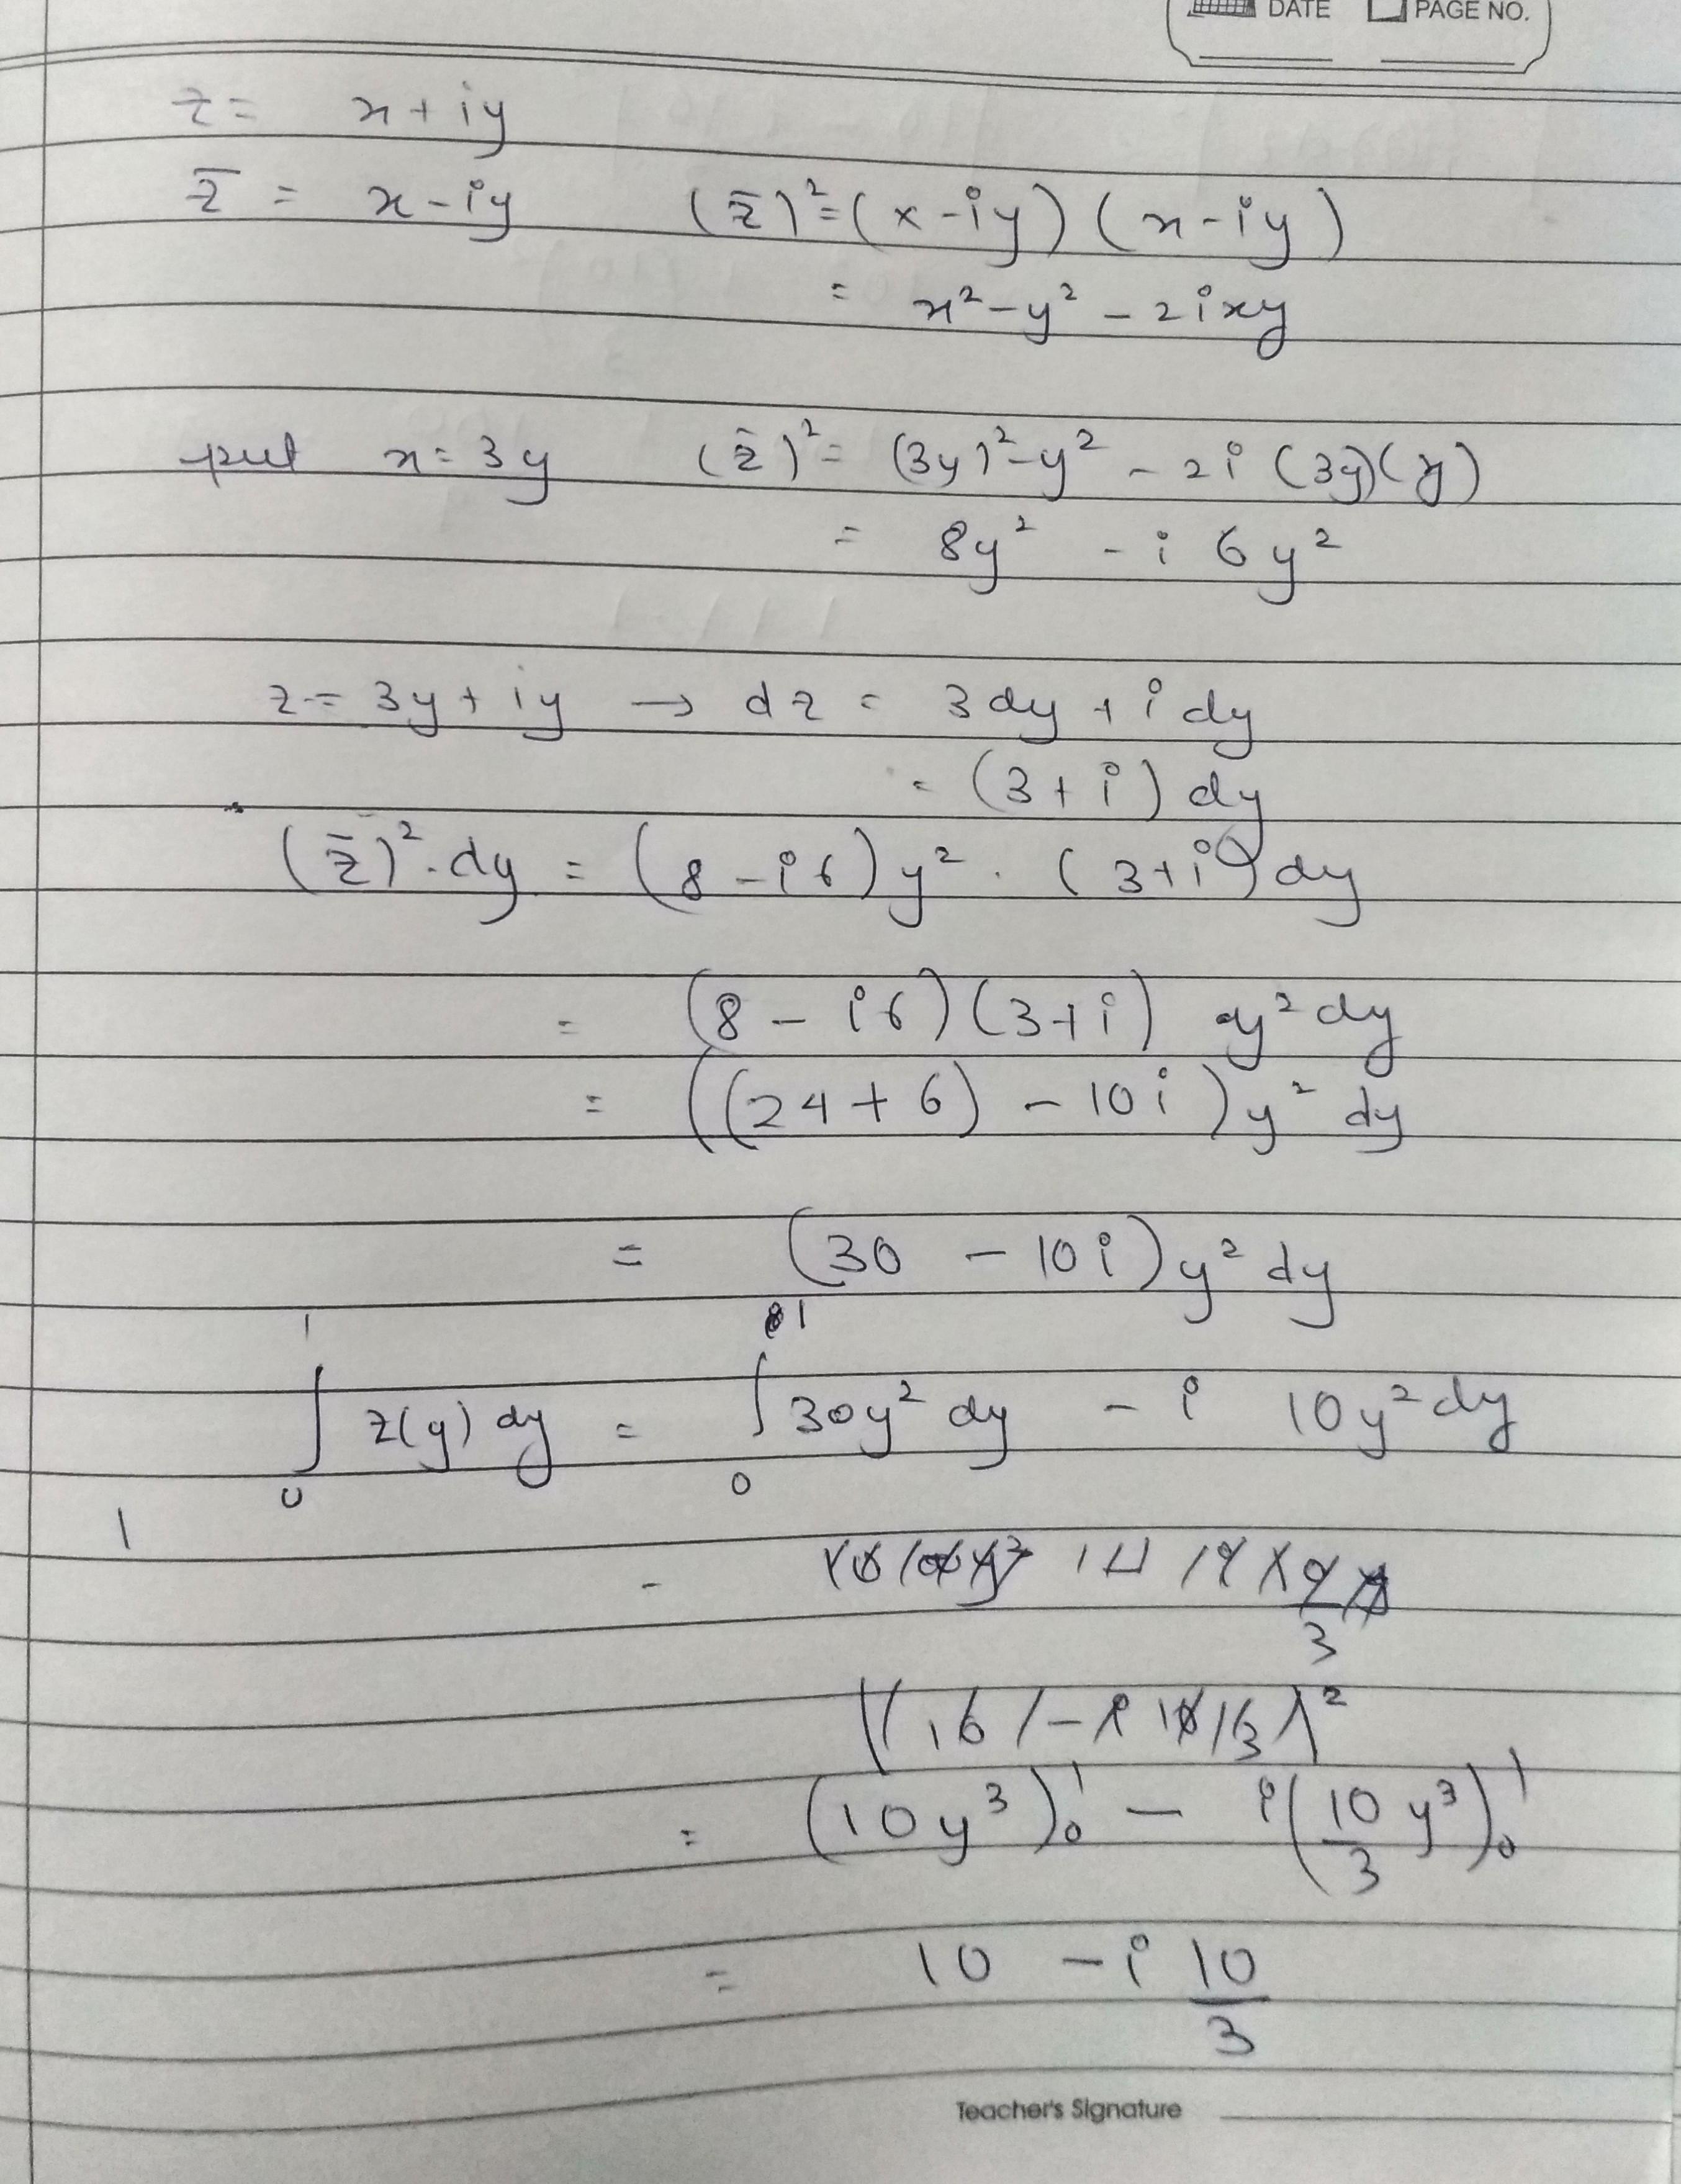 DATE PAGE NO.
z = x + iy
z̅ = x - iy (z̅)² = (x - iy) (x - iy)
= x² - y² - 2ixy
put x = 3y (z̅)² = (3y)² - y² - 2i (3y)(y)
= 8y² - i 6y²
z = 3y + iy → dz = 3dy + i dy
= (3 + i) dy
(z̅)² . dy = (8 - i6) y² . (3 + i) dy
= (8 - i6) (3 + i) y² dy
= ((24 + 6) - 10i) y² dy
= (30 - 10i) y² dy
∫₀¹ z(y) dy = ∫₀¹ 30y² dy - i 10y² dy
1
= (10y³)₀¹ - i(10/3 y³)₀¹
= 10 - i 10/3
Teacher's Signature